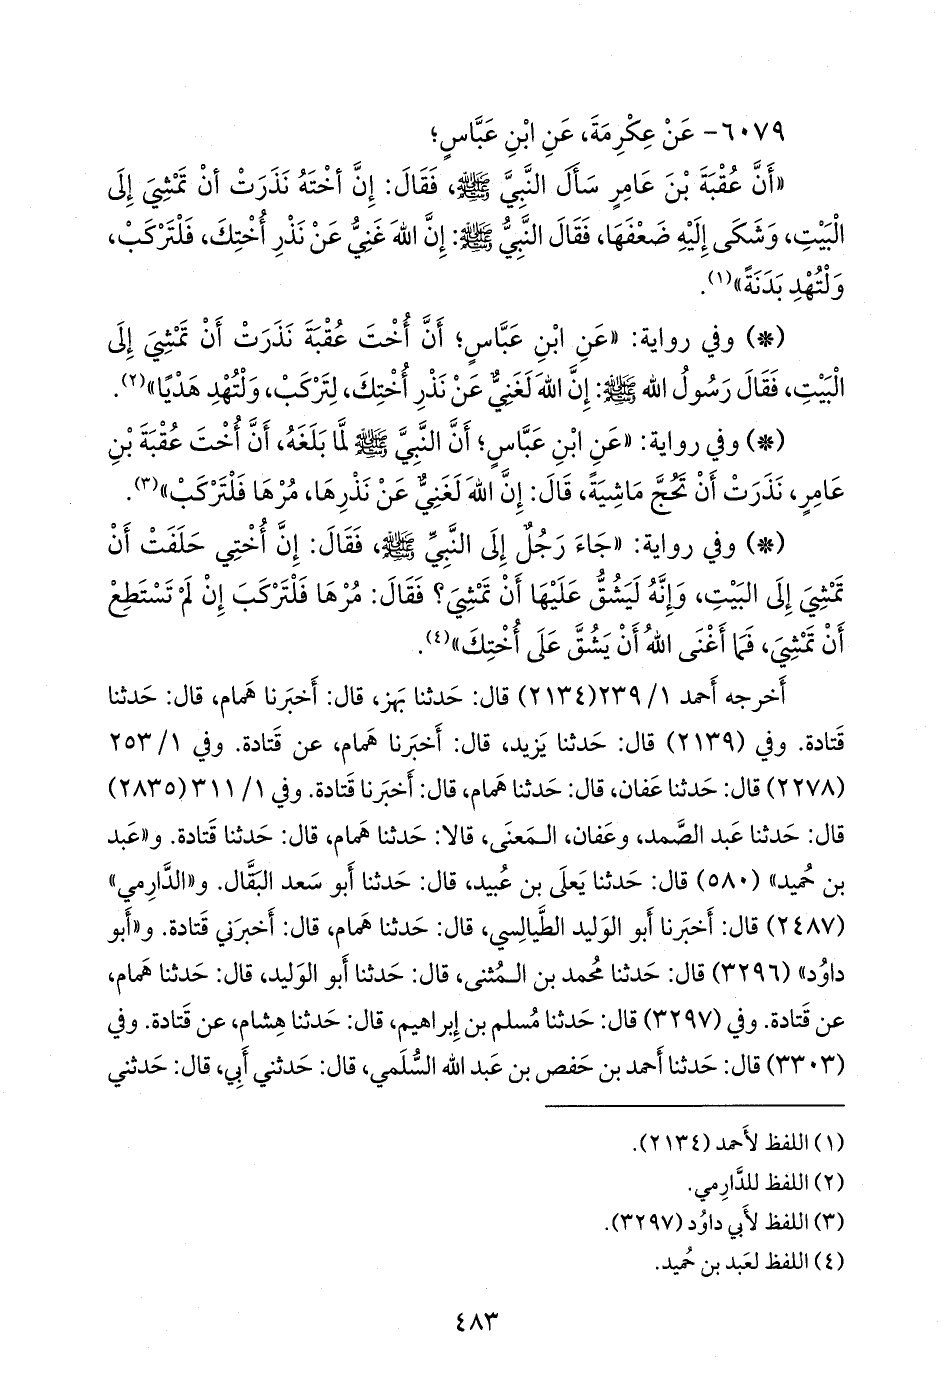 ٦٠٧٩- عَنْ عِكْرِمَةَ، عَنِ ابْنِ عَبَّاسٍ؛
«أَنَّ عُقْبَةَ بْنَ عَامِرٍ سَأَلَ النَّبِيَّ ﷺ، فَقَالَ: إِنَّ أُخْتَهُ نَذَرَتْ أَنْ تَمْشِيَ إِلَى
الْبَيْتِ، وَشَكَى إِلَيْهِ ضَعْفَهَا، فَقَالَ النَّبِيُّ ﷺ: إِنَّ اللهَ غَنِيٌّ عَنْ نَذْرِ أُخْتِكَ، فَلْتَرْكَبْ،
وَلْتُهْدِ بَدَنَةً»(١).
(*) وفي رواية: «عَنِ ابْنِ عَبَّاسٍ؛ أَنَّ أُخْتَ عُقْبَةَ نَذَرَتْ أَنْ تَمْشِيَ إِلَى
الْبَيْتِ، فَقَالَ رَسُولُ الله ﷺ: إِنَّ اللهَ لَغَنِيٌّ عَنْ نَذْرِ أُخْتِكَ، لِتَرْكَبْ، وَلْتُهْدِ هَدْيًا»(٢).
(*) وفي رواية: «عَنِ ابْنِ عَبَّاسٍ؛ أَنَّ النَّبِيَّ ﷺ لَمَّا بَلَغَهُ، أَنَّ أُخْتَ عُقْبَةَ بْنِ
عَامِرٍ، نَذَرَتْ أَنْ تَحُجَّ مَاشِيَةً، قَالَ: إِنَّ اللهَ لَغَنِيٌّ عَنْ نَذْرِهَا، مُرْهَا فَلْتَرْكَبْ»(٣).
(*) وفي رواية: «جَاءَ رَجُلٌ إِلَى النَّبِيِّ ﷺ، فَقَالَ: إِنَّ أُخْتِي حَلَفَتْ أَنْ
تَمْشِيَ إِلَى البَيْتِ، وَإِنَّهُ لَيَشُقُّ عَلَيْهَا أَنْ تَمْشِيَ؟ فَقَالَ: مُرْهَا فَلْتَرْكَبَ إِنْ لَمْ تَسْتَطِعْ
أَنْ تَمْشِيَ، فَمَا أَغْنَى اللهُ أَنْ يَشُقَّ عَلَى أُخْتِكَ»(٤).
أَخرجه أَحمد ١/ ٢٣٩(٢١٣٤) قال: حَدثنا بَهز، قال: أَخبَرنا هَمام، قال: حَدثنا
قَتادة. وفي (٢١٣٩) قال: حَدثنا يَزيد، قال: أَخبَرنا هَمام، عن قَتادة. وفي ١/ ٢٥٣
(٢٢٧٨) قال: حَدثنا عَفان، قال: حَدثنا هَمام، قال: أَخبَرنا قَتادة. وفي ١/ ٣١١(٢٨٣٥)
قال: حَدثنا عَبد الصَّمد، وعَفان، الـمَعنَى، قالا: حَدثنا هَمام، قال: حَدثنا قَتادة. و«عَبد
بن حُميد» (٥٨٠) قال: حَدثنا يَعلَى بن عُبيد، قال: حَدثنا أَبو سَعد البَقَّال. و«الدَّارِمي»
(٢٤٨٧) قال: أَخبَرنا أَبو الوَليد الطَّيالِسي، قال: حَدثنا هَمام، قال: أَخبَرَني قَتادة. و«أَبو
داوُد» (٣٢٩٦) قال: حَدثنا مُحمد بن الـمُثنى، قال: حَدثنا أَبو الوَليد، قال: حَدثنا هَمام،
عن قَتادة. وفي (٣٢٩٧) قال: حَدثنا مُسلم بن إِبراهيم، قال: حَدثنا هِشام، عن قَتادة. وفي
(٣٣٠٣) قال: حَدثنا أَحمد بن حَفص بن عَبد الله السُّلَمي، قال: حَدثني أَبي، قال: حَدثني
(١) اللفظ لأَحمد (٢١٣٤).
(٢) اللفظ للدَّارِمي.
(٣) اللفظ لأَبي داوُد (٣٢٩٧).
(٤) اللفظ لعَبد بن حُميد.
٤٨٣